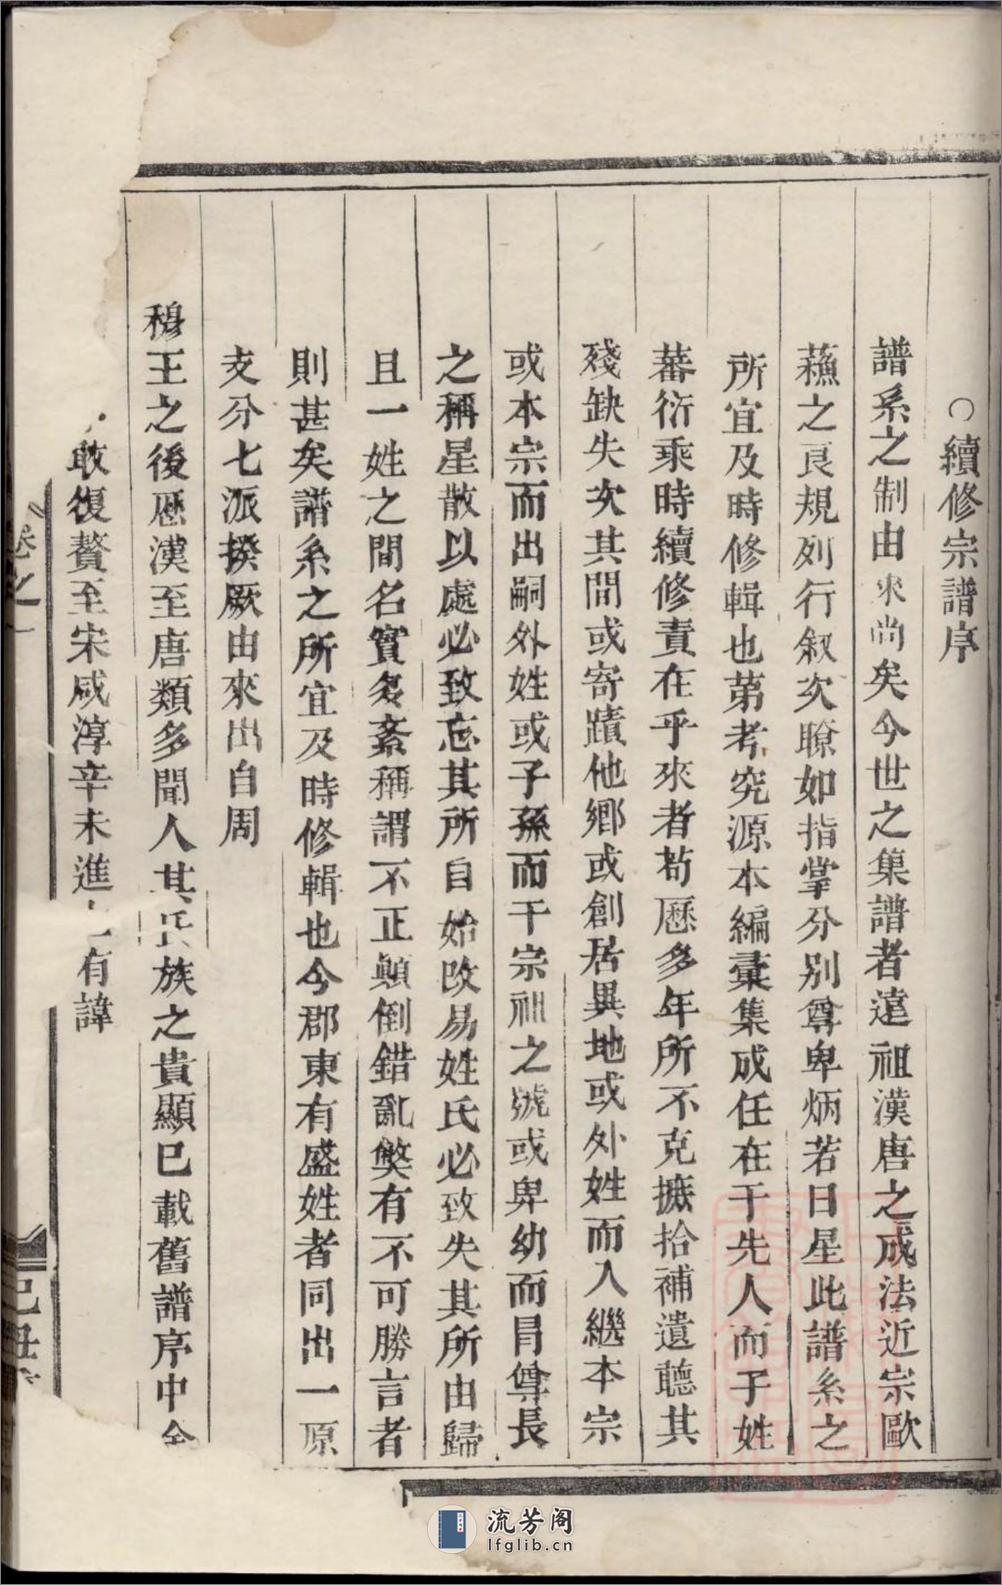 ○續修宗譜序
譜系之制由來尚矣今世之集譜者遠祖漢唐之成法近宗歐
蘓之良規列行叙次瞭如指掌分別尊卑炳若日星此譜系之
所宜及時修輯也苐考究源本編彚集成任在于先人而子姓
蕃衍乘時續修責在乎來者苟歷多年所不克摭拾補遺聽其
殘缺失次其間或寄蹟他鄉或創居異地或外姓而入繼本宗
或本宗而出嗣外姓或子孫而干宗祖之號或卑幼而冐尊長
之稱星散以處必致忘其所自始改易姓氏必致失其所由歸
且一姓之間名實多紊稱謂不正顛倒錯亂獘有不可勝言者
則甚矣譜系之所宜及時修輯也今郡東有盛姓者同出一原
支分七派揆厥由來出自周
穆王之後歷漢至唐類多聞人其氏族之貴顯已載舊譜序中余
敢復贅至宋咸淳辛未進士有諱
卷之一
流芳阁
lfglib.cn